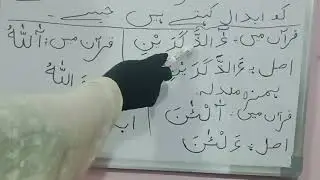 کو ابدال کہتے ہیں جیسے۔
قرآن میں: ءٰٓالذَّکَرَیْنِ
اصل: ءَالذَّکَرَیْنِ
ہمزہ مبدلہ
قرآن میں: آٰلْـٰٔنَ
اصل: ءَلْـٰٔنَ
قرآن میں: آللّٰهُ
اللّٰهُ